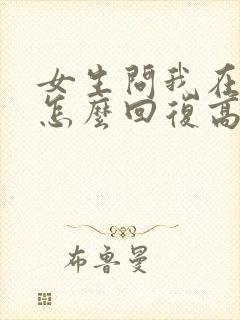 女生問我在
怎麼回復高
布魯曼